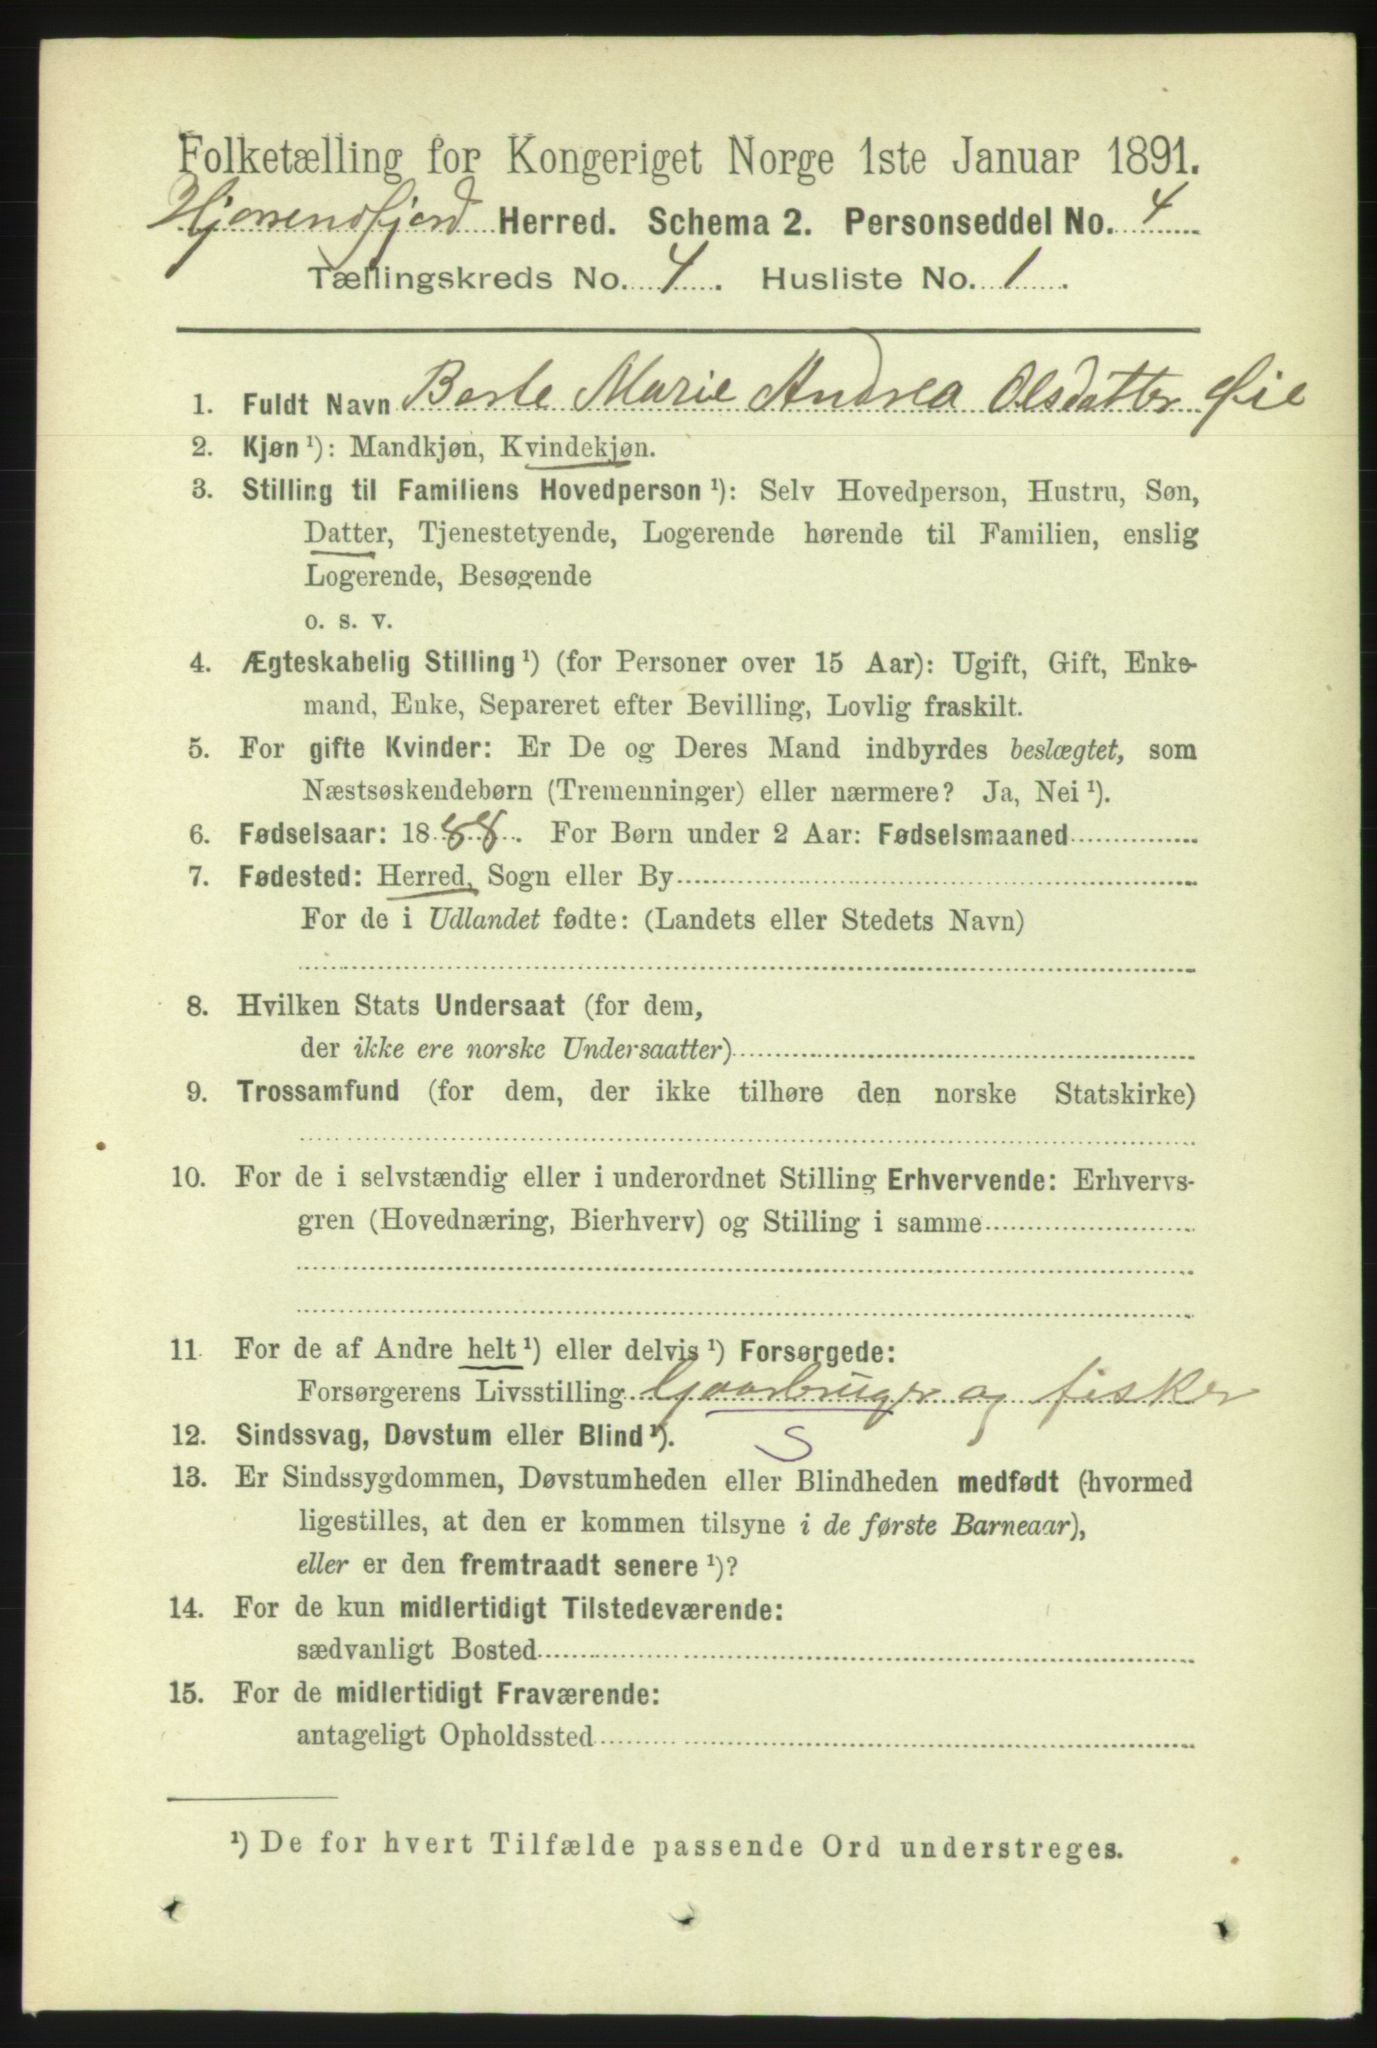 Folketælling for Kongeriget Norge 1ste Januar 1891.
Hjørendfjord Herred. Schema 2. Personseddel No. 4
Tællingskreds No. 4. Husliste No. 1.
1. Fuldt Navn Berte Marie Andrea Olsdatter Øie
2. Kjøn ¹): Mandkjøn, Kvindekjøn.
3. Stilling til Familiens Hovedperson ¹): Selv Hovedperson, Hustru, Søn,
Datter, Tjenestetyende, Logerende hørende til Familien, enslig
Logerende, Besøgende
o. s. v.
4. Ægteskabelig Stilling ¹) (for Personer over 15 Aar): Ugift, Gift, Enke-
mand, Enke, Separeret efter Bevilling, Lovlig fraskilt.
5. For gifte Kvinder: Er De og Deres Mand indbyrdes beslægtet, som
Næstsøskendebørn (Tremenninger) eller nærmere? Ja, Nei ¹).
6. Fødselsaar: 1888. For Børn under 2 Aar: Fødselsmaaned
7. Fødested: Herred, Sogn eller By
For de i Udlandet fødte: (Landets eller Stedets Navn)
8. Hvilken Stats Undersaat (for dem,
der ikke ere norske Undersaatter)
9. Trossamfund (for dem, der ikke tilhøre den norske Statskirke)
10. For de i selvstændig eller i underordnet Stilling Erhvervende: Erhvervs-
gren (Hovednæring, Bierhverv) og Stilling i samme
11. For de af Andre helt ¹) eller delvis ¹) Forsørgede:
Forsørgerens Livsstilling Gaarbruger og fisker
12. Sindssvag, Døvstum eller Blind ¹). S
13. Er Sindssygdommen, Døvstumheden eller Blindheden medfødt (hvormed
ligestilles, at den er kommen tilsyne i de første Barneaar),
eller er den fremtraadt senere ¹)?
14. For de kun midlertidigt Tilstedeværende:
sædvanligt Bosted
15. For de midlertidigt Fraværende:
antageligt Opholdssted
¹) De for hvert Tilfælde passende Ord understreges.